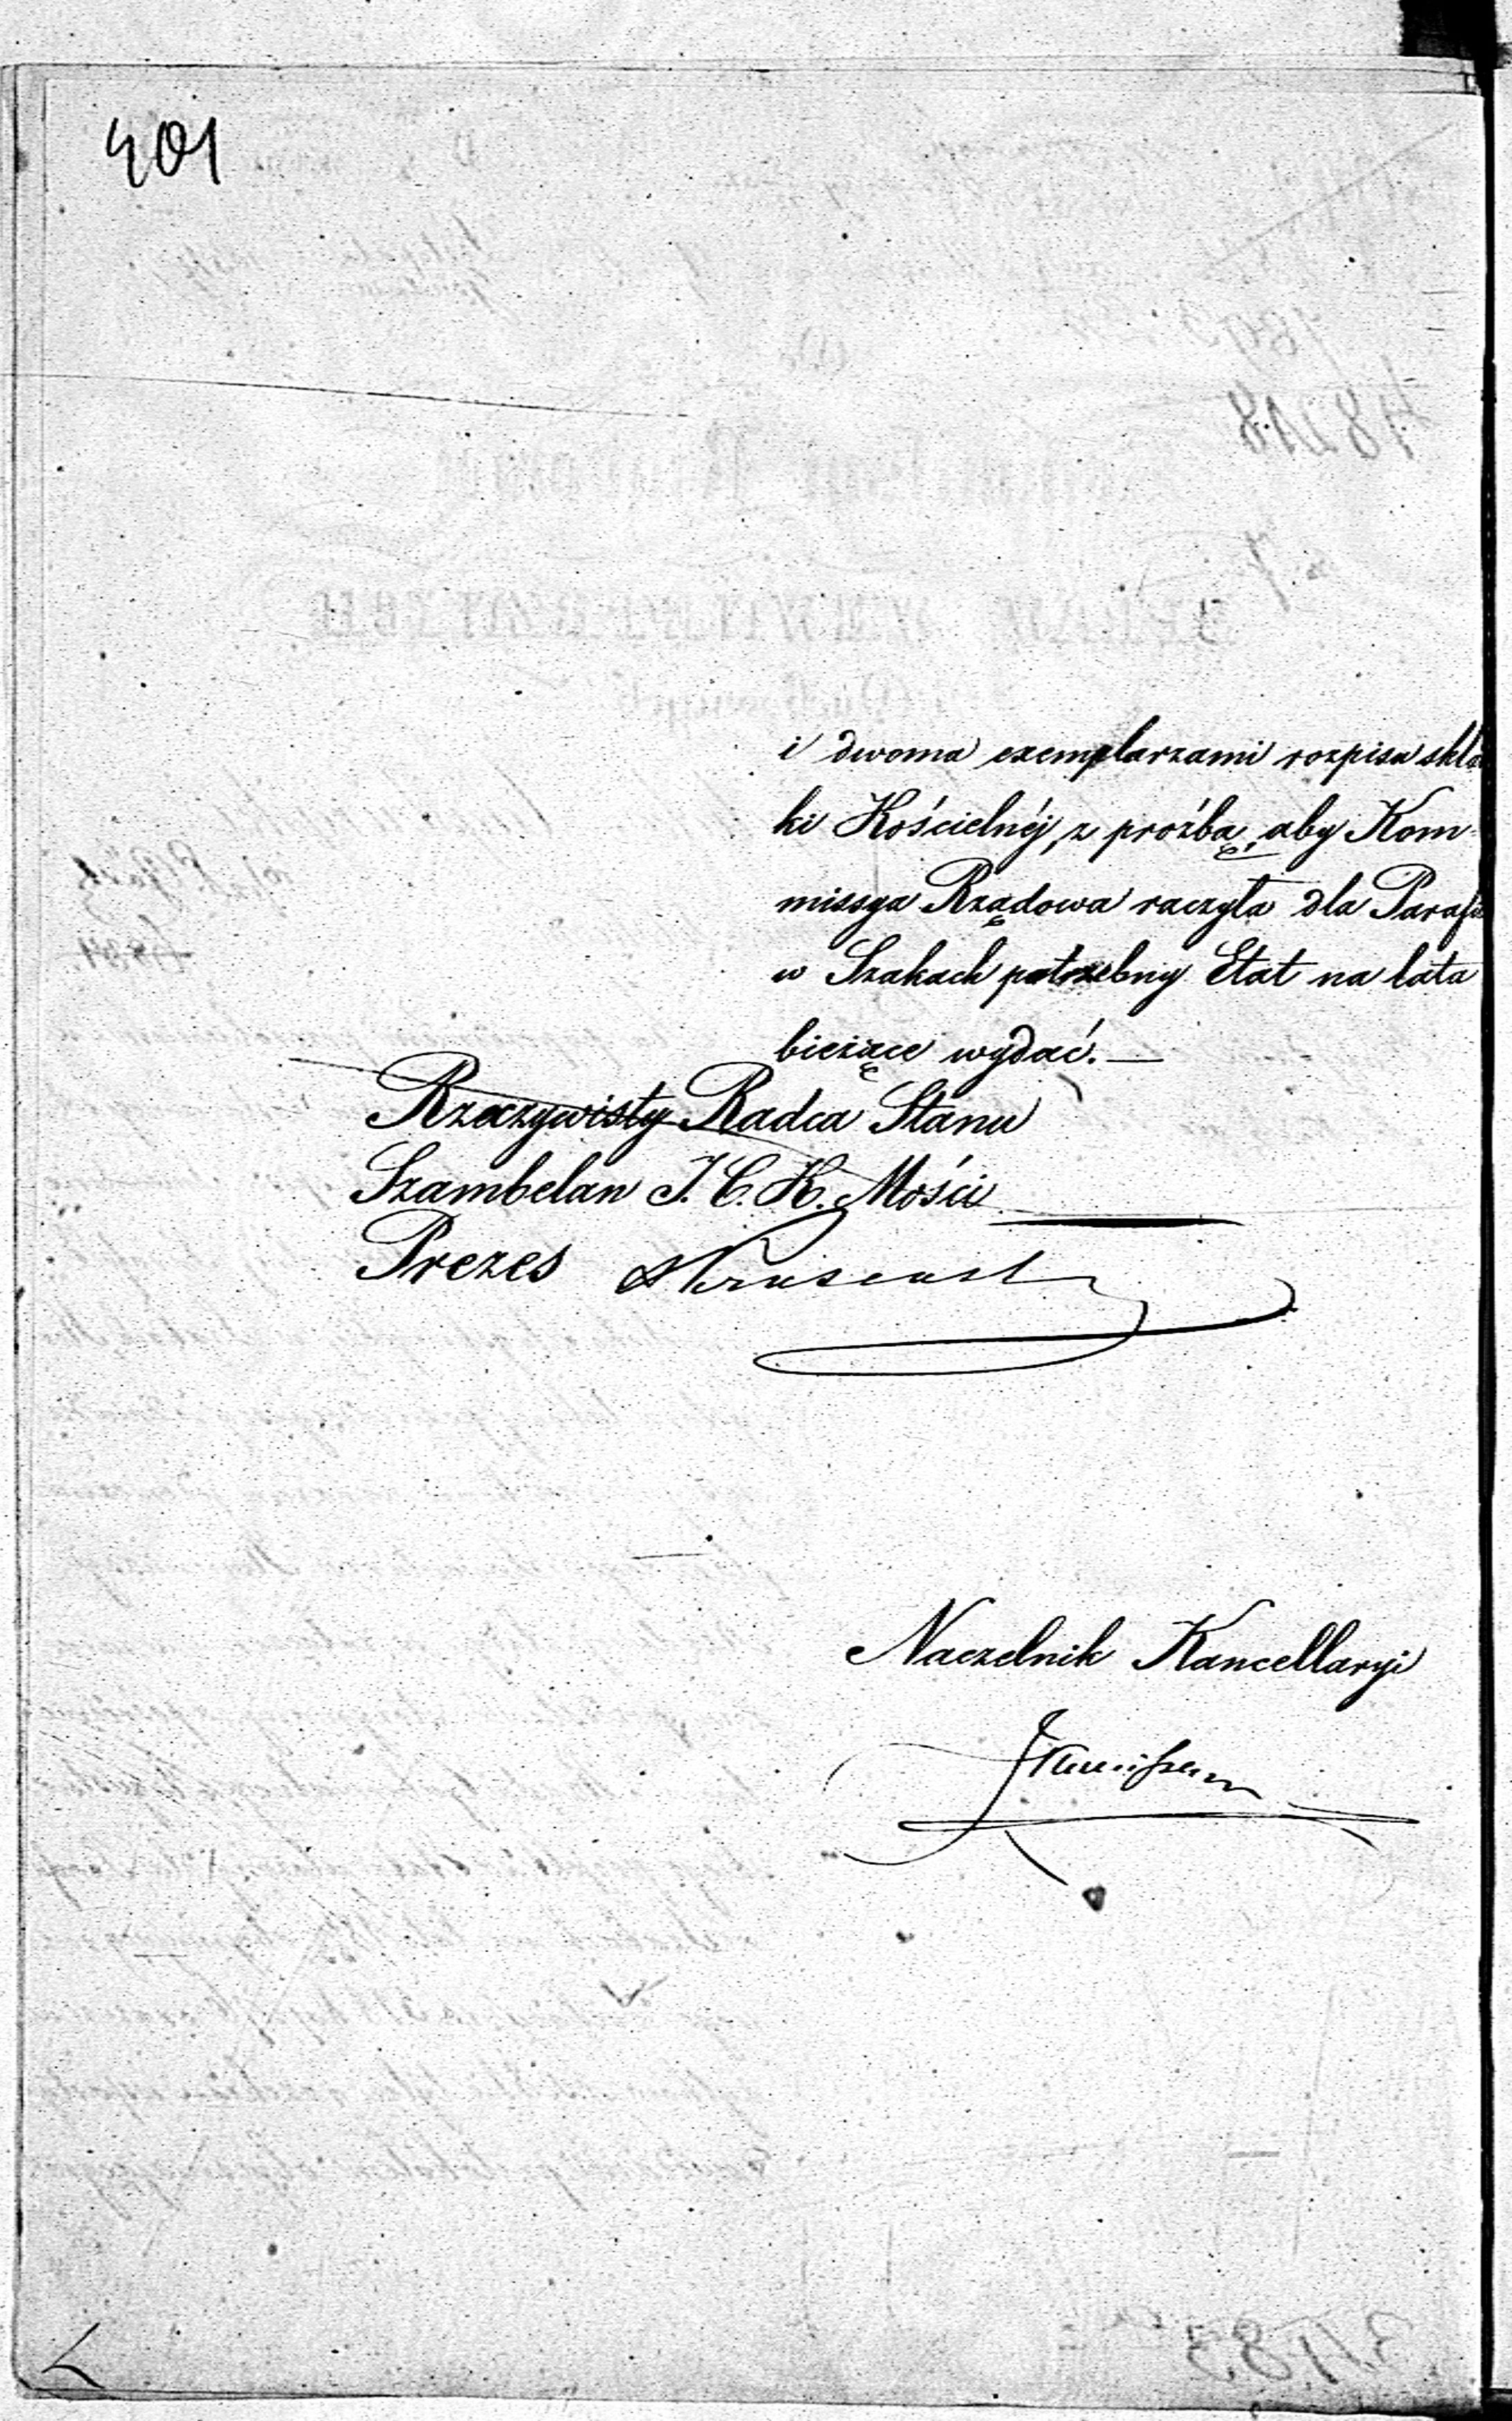 401
i dwoma exemplarzami rozpisu skła
ki Kościelnéj, z prożbą, aby Kom-
missya Rządowa raczyła dla Parafii
w Szakach potrzebny Etat na lata
bieżące wydać. —
Rzeczywisty Radca Stanu
Szambelan J. C. K. Mości
Prezes
Naczelnik Kancellaryi